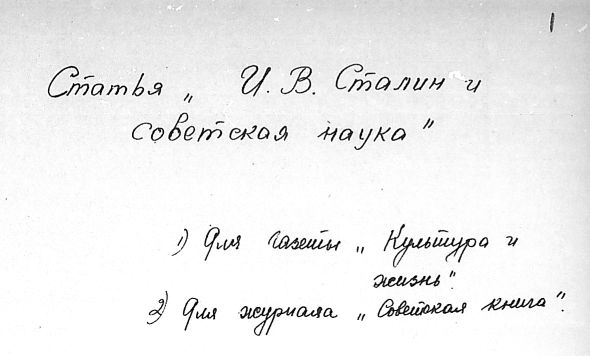 1
Статья „ И. В. Сталин и
советская наука"
1) Для газеты „ Культура и
жизнь".
2) Для журнала „ Советская книга".